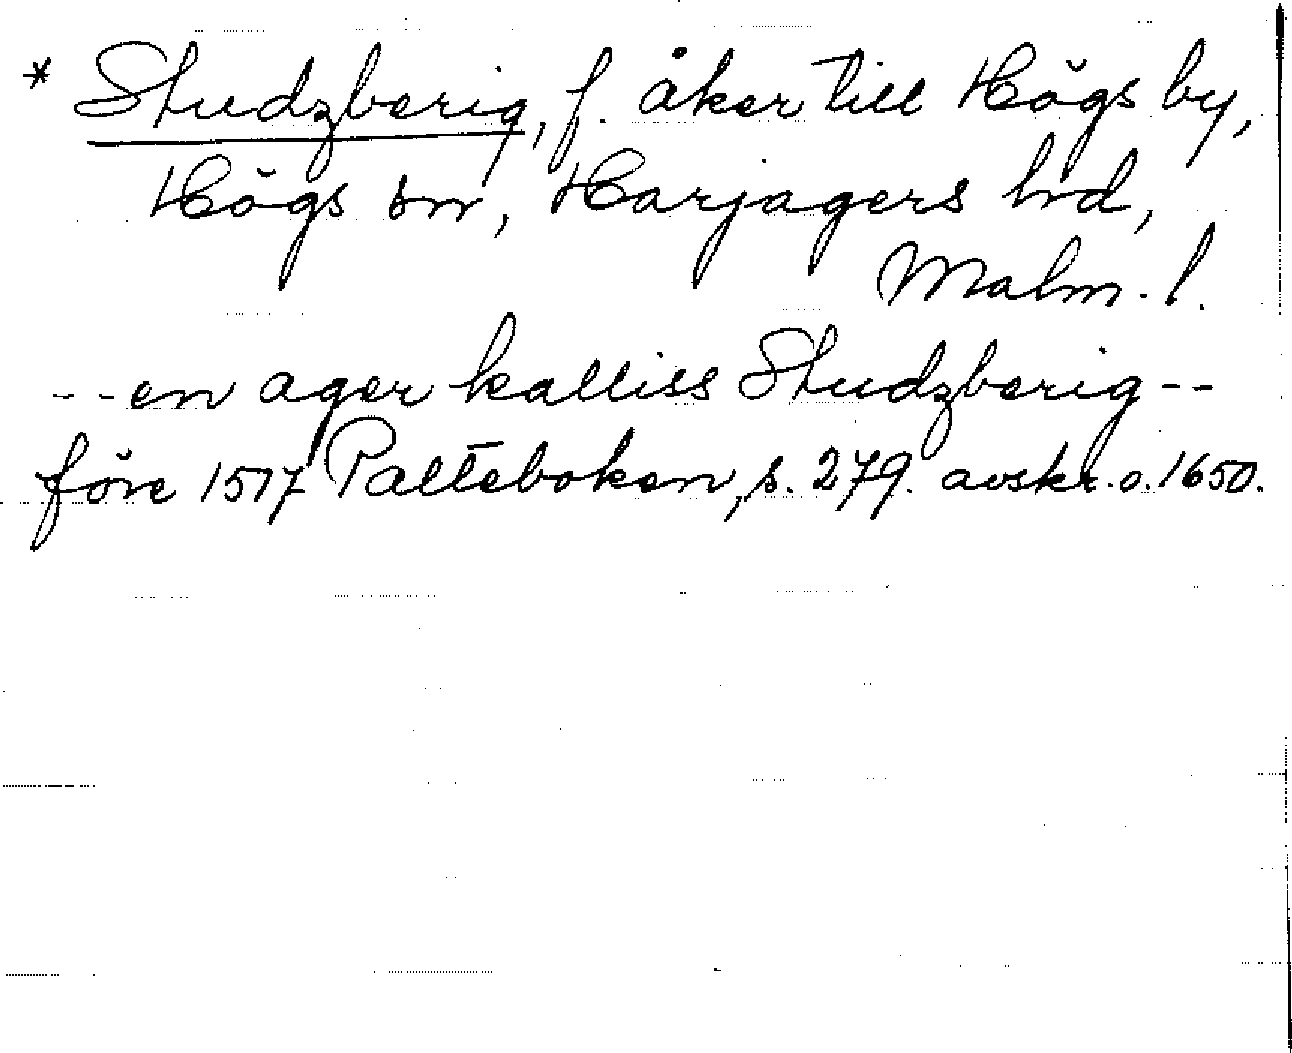 * Studzberig, f. åker till Högs by,
Högs sn, Harjagers hd,
Malm. l.
-- en ager kalliss Studzberig --
före 1517 Palteboken, s. 279. avskr. o. 1650.